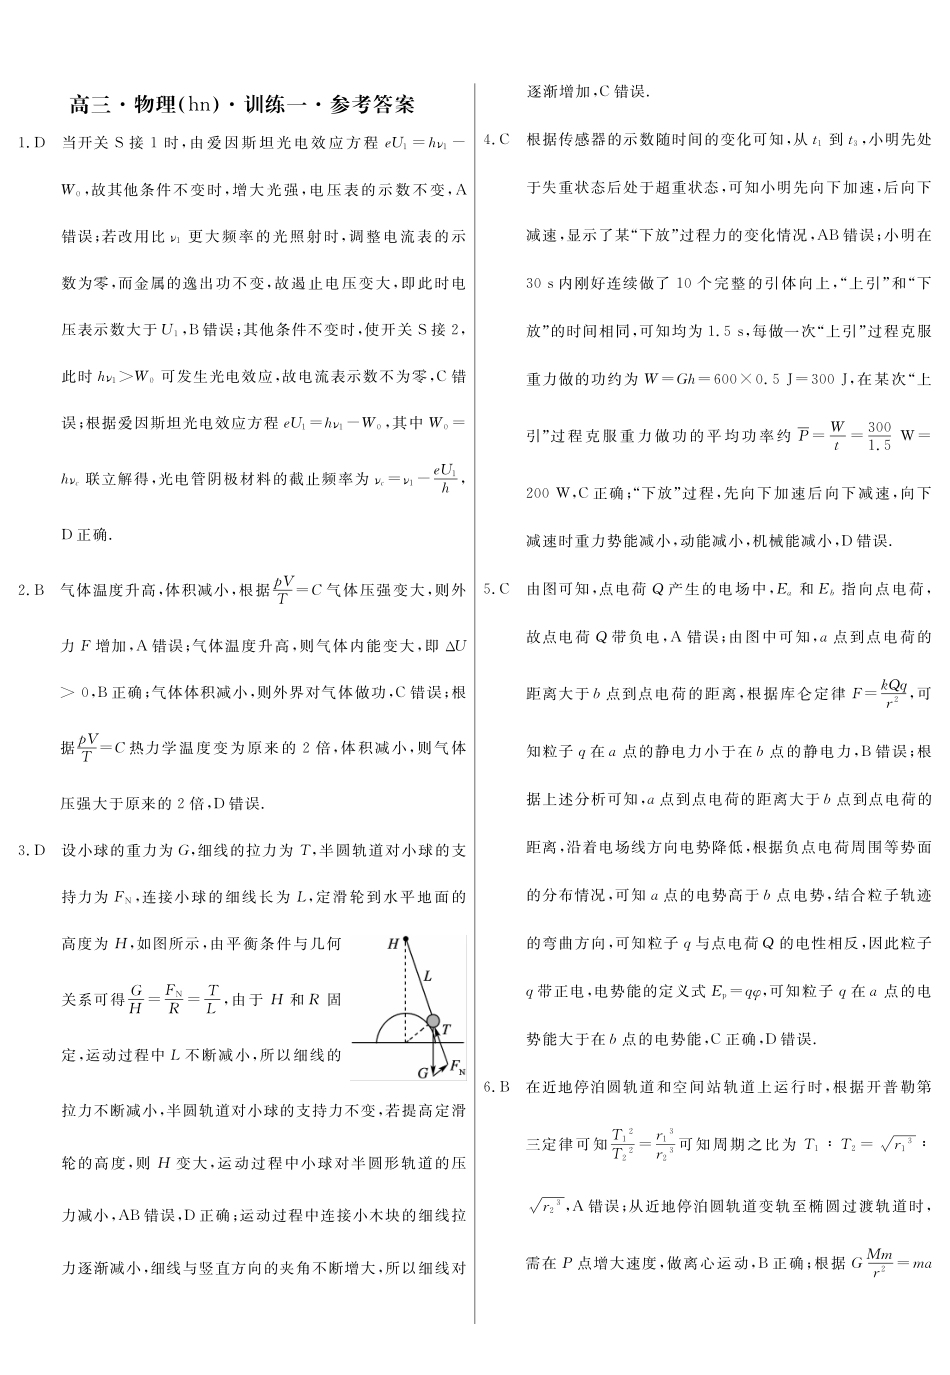 高三·物理(hn)·训练一·参考答案
1. D 当开关 S 接 1 时,由爱因斯坦光电效应方程 eU₁=hν₁－
W₀,故其他条件不变时,增大光强,电压表的示数不变,A
错误;若改用比 ν₁ 更大频率的光照射时,调整电流表的示
数为零,而金属的逸出功不变,故遏止电压变大,即此时电
压表示数大于 U₁,B错误;其他条件不变时,使开关 S 接 2,
此时 hν₁＞W₀ 可发生光电效应,故电流表示数不为零,C 错
误;根据爱因斯坦光电效应方程 eU₁=hν₁－W₀,其中 W₀=
hν꜀ 联立解得,光电管阴极材料的截止频率为 ν꜀=ν₁－eU₁/h,
D 正确.
2. B 气体温度升高,体积减小,根据 pV/T=C 气体压强变大,则外
力 F 增加,A 错误;气体温度升高,则气体内能变大,即 ΔU
＞0,B 正确;气体体积减小,则外界对气体做功,C 错误;根
据 pV/T=C 热力学温度变为原来的 2 倍,体积减小,则气体
压强大于原来的 2 倍,D 错误.
3. D 设小球的重力为 G,细线的拉力为 T,半圆轨道对小球的支
持力为 F_N,连接小球的细线长为 L,定滑轮到水平地面的
高度为 H,如图所示,由平衡条件与几何
关系可得 G/H=F_N/R=T/L,由于 H 和 R 固
定,运动过程中 L 不断减小,所以细线的
H
L
T
G
F_N
拉力不断减小,半圆轨道对小球的支持力不变,若提高定滑
轮的高度,则 H 变大,运动过程中小球对半圆形轨道的压
力减小,AB 错误,D 正确;运动过程中连接小木块的细线拉
力逐渐减小,细线与竖直方向的夹角不断增大,所以细线对
逐渐增加,C 错误.
4. C 根据传感器的示数随时间的变化可知,从 t₁ 到 t₃,小明先处
于失重状态后处于超重状态,可知小明先向下加速,后向下
减速,显示了某“下放”过程力的变化情况,AB 错误;小明在
30 s 内刚好连续做了 10 个完整的引体向上,“上引”和“下
放”的时间相同,可知均为 1.5 s,每做一次“上引”过程克服
重力做的功约为 W=Gh=600×0.5 J=300 J,在某次“上
引”过程克服重力做功的平均功率约 P̅=W/t=300/1.5 W=
200 W,C 正确;“下放”过程,先向下加速后向下减速,向下
减速时重力势能减小,动能减小,机械能减小,D 错误.
5. C 由图可知,点电荷 Q 产生的电场中,E_a 和 E_b 指向点电荷,
故点电荷 Q 带负电,A 错误;由图中可知,a 点到点电荷的
距离大于 b 点到点电荷的距离,根据库仑定律 F=kQq/r²,可
知粒子 q 在 a 点的静电力小于在 b 点的静电力,B 错误;根
据上述分析可知,a 点到点电荷的距离大于 b 点到点电荷的
距离,沿着电场线方向电势降低,根据负点电荷周围等势面
的分布情况,可知 a 点的电势高于 b 点电势,结合粒子轨迹
的弯曲方向,可知粒子 q 与点电荷 Q 的电性相反,因此粒子
q 带正电,电势能的定义式 Eₚ=qφ,可知粒子 q 在 a 点的电
势能大于在 b 点的电势能,C 正确,D 错误.
6. B 在近地停泊圆轨道和空间站轨道上运行时,根据开普勒第
三定律可知 T₁²/T₂²=r₁³/r₂³ 可知周期之比为 T₁∶T₂=√r₁³∶
√r₂³,A 错误;从近地停泊圆轨道变轨至椭圆过渡轨道时,
需在 P 点增大速度,做离心运动,B 正确;根据 G Mm/r²=ma